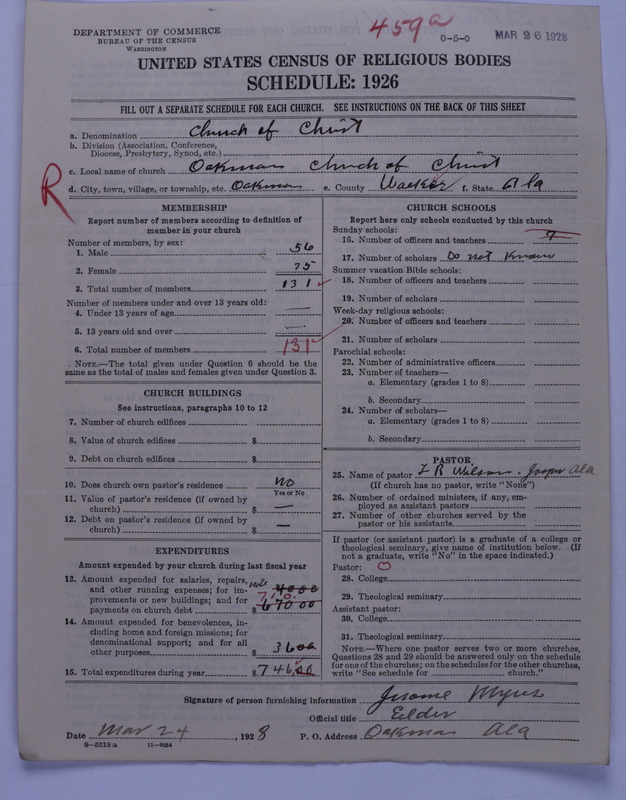 DEPARTMENT OF COMMERCE
BUREAU OF THE CENSUS
WASHINGTON
459a
0-5-0
MAR 26 1928
UNITED STATES CENSUS OF RELIGIOUS BODIES
SCHEDULE: 1926
FILL OUT A SEPARATE SCHEDULE FOR EACH CHURCH. SEE INSTRUCTIONS ON THE BACK OF THIS SHEET
a. Denomination Church of Christ
b. Division (Association, Conference, Diocese, Presbytery, Synod, etc.)
c. Local name of church Oakman Church of Christ
R
d. City, town, village, or township, etc. Oakman e. County Walker f. State Ala
MEMBERSHIP
Report number of members according to definition of member in your church
Number of members, by sex:
1. Male 56
2. Female 75
3. Total number of members 131
Number of members under and over 13 years old:
4. Under 13 years of age —
5. 13 years old and over —
6. Total number of members 131
NOTE.—The total given under Question 6 should be the same as the total of males and females given under Question 3.
CHURCH BUILDINGS
See instructions, paragraphs 10 to 12
7. Number of church edifices
8. Value of church edifices $
9. Debt on church edifices $
10. Does church own pastor's residence No
Yes or No
11. Value of pastor's residence (if owned by church) $ —
12. Debt on pastor's residence (if owned by church) $ —
EXPENDITURES
Amount expended by your church during last fiscal year
13. Amount expended for salaries, repairs, and other running expenses; for improvements or new buildings; and for payments on church debt $ 710.
14. Amount expended for benevolences, including home and foreign missions; for denominational support; and for all other purposes $ 3600
15. Total expenditures during year $ 746.00
CHURCH SCHOOLS
Report here only schools conducted by this church
Sunday schools:
16. Number of officers and teachers 7
17. Number of scholars Do not Know
Summer vacation Bible schools:
18. Number of officers and teachers
19. Number of scholars
Week-day religious schools:
20. Number of officers and teachers
21. Number of scholars
Parochial schools:
22. Number of administrative officers
23. Number of teachers—
a. Elementary (grades 1 to 8)
b. Secondary
24. Number of scholars—
a. Elementary (grades 1 to 8)
b. Secondary
PASTOR
25. Name of pastor Wilson. Jasper Ala
(If church has no pastor, write "None")
26. Number of ordained ministers, if any, employed as assistant pastors
27. Number of other churches served by the pastor or his assistants
If pastor (or assistant pastor) is a graduate of a college or theological seminary, give name of institution below. (If not a graduate, write "No" in the space indicated.)
Pastor: O
28. College
29. Theological seminary
Assistant pastor:
30. College
31. Theological seminary
NOTE.—Where one pastor serves two or more churches, Questions 28 and 29 should be answered only on the schedule for one of the churches; on the schedules for the other churches, write "See schedule for church."
Signature of person furnishing information Jerome Myers
Official title Eelder
Date Mar 24, 1928 P. O. Address Oakman Ala
8-5518a 11-9034